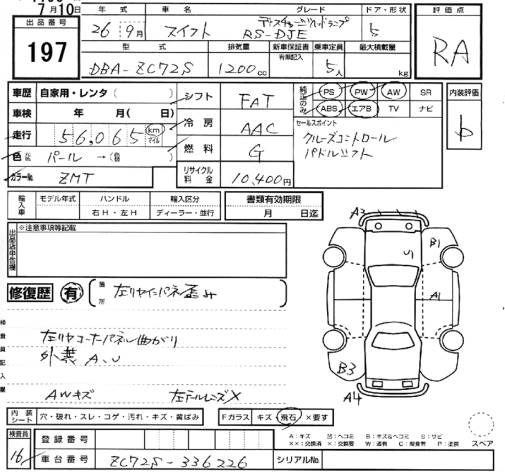 7月10日
出品番号 197
年式 26年9月
車名 スイフト
グレード ディスチャージヘッドランプ RS-DJE
ドア・形状 5
評価点 RA
型式 DBA-ZC72S
排気量 1200cc
新車保証書 有際記入
乗車定員 5人
最大積載量 kg
車歴 自家用・レンタ( )
シフト FAT
純正のみ PS PW AW SR
ABS エアB TV ナビ
内装評価 b
車検 年 月( 日)
冷房 AAC
セールスポイント
クルーズコントロール
パドルシフト
走行 56,065 km マイル
燃料 G
色 パール →( )
カラーNo. ZMT
リサイクル料金 10,400円
輸入車 モデル年式 ハンドル 右H・左H 輸入区分 ディーラー・並行
書類有効期限 月 日迄
※注意事項等記載
出品店申告欄
修復歴 有 箇所 左リヤインパネ歪み
検査員記入欄
左リヤコーナーパネル曲がり
外装 A、U
AWキズ 左テールレンズX
A2
U1
B1
A1
B3
A4
内装シート 穴・破れ・スレ・コゲ・汚れ・キズ・黄ばみ
Fガラス キズ 飛石 ×要す
A:キズ U:ヘコミ B:キズ&ヘコミ S:サビ
××:交換済 X:交換要 W:波有 C:腐食有 P:塗装
スペア
検査員 16
登録番号
車台番号 ZC72S-336226
シリアルNo.